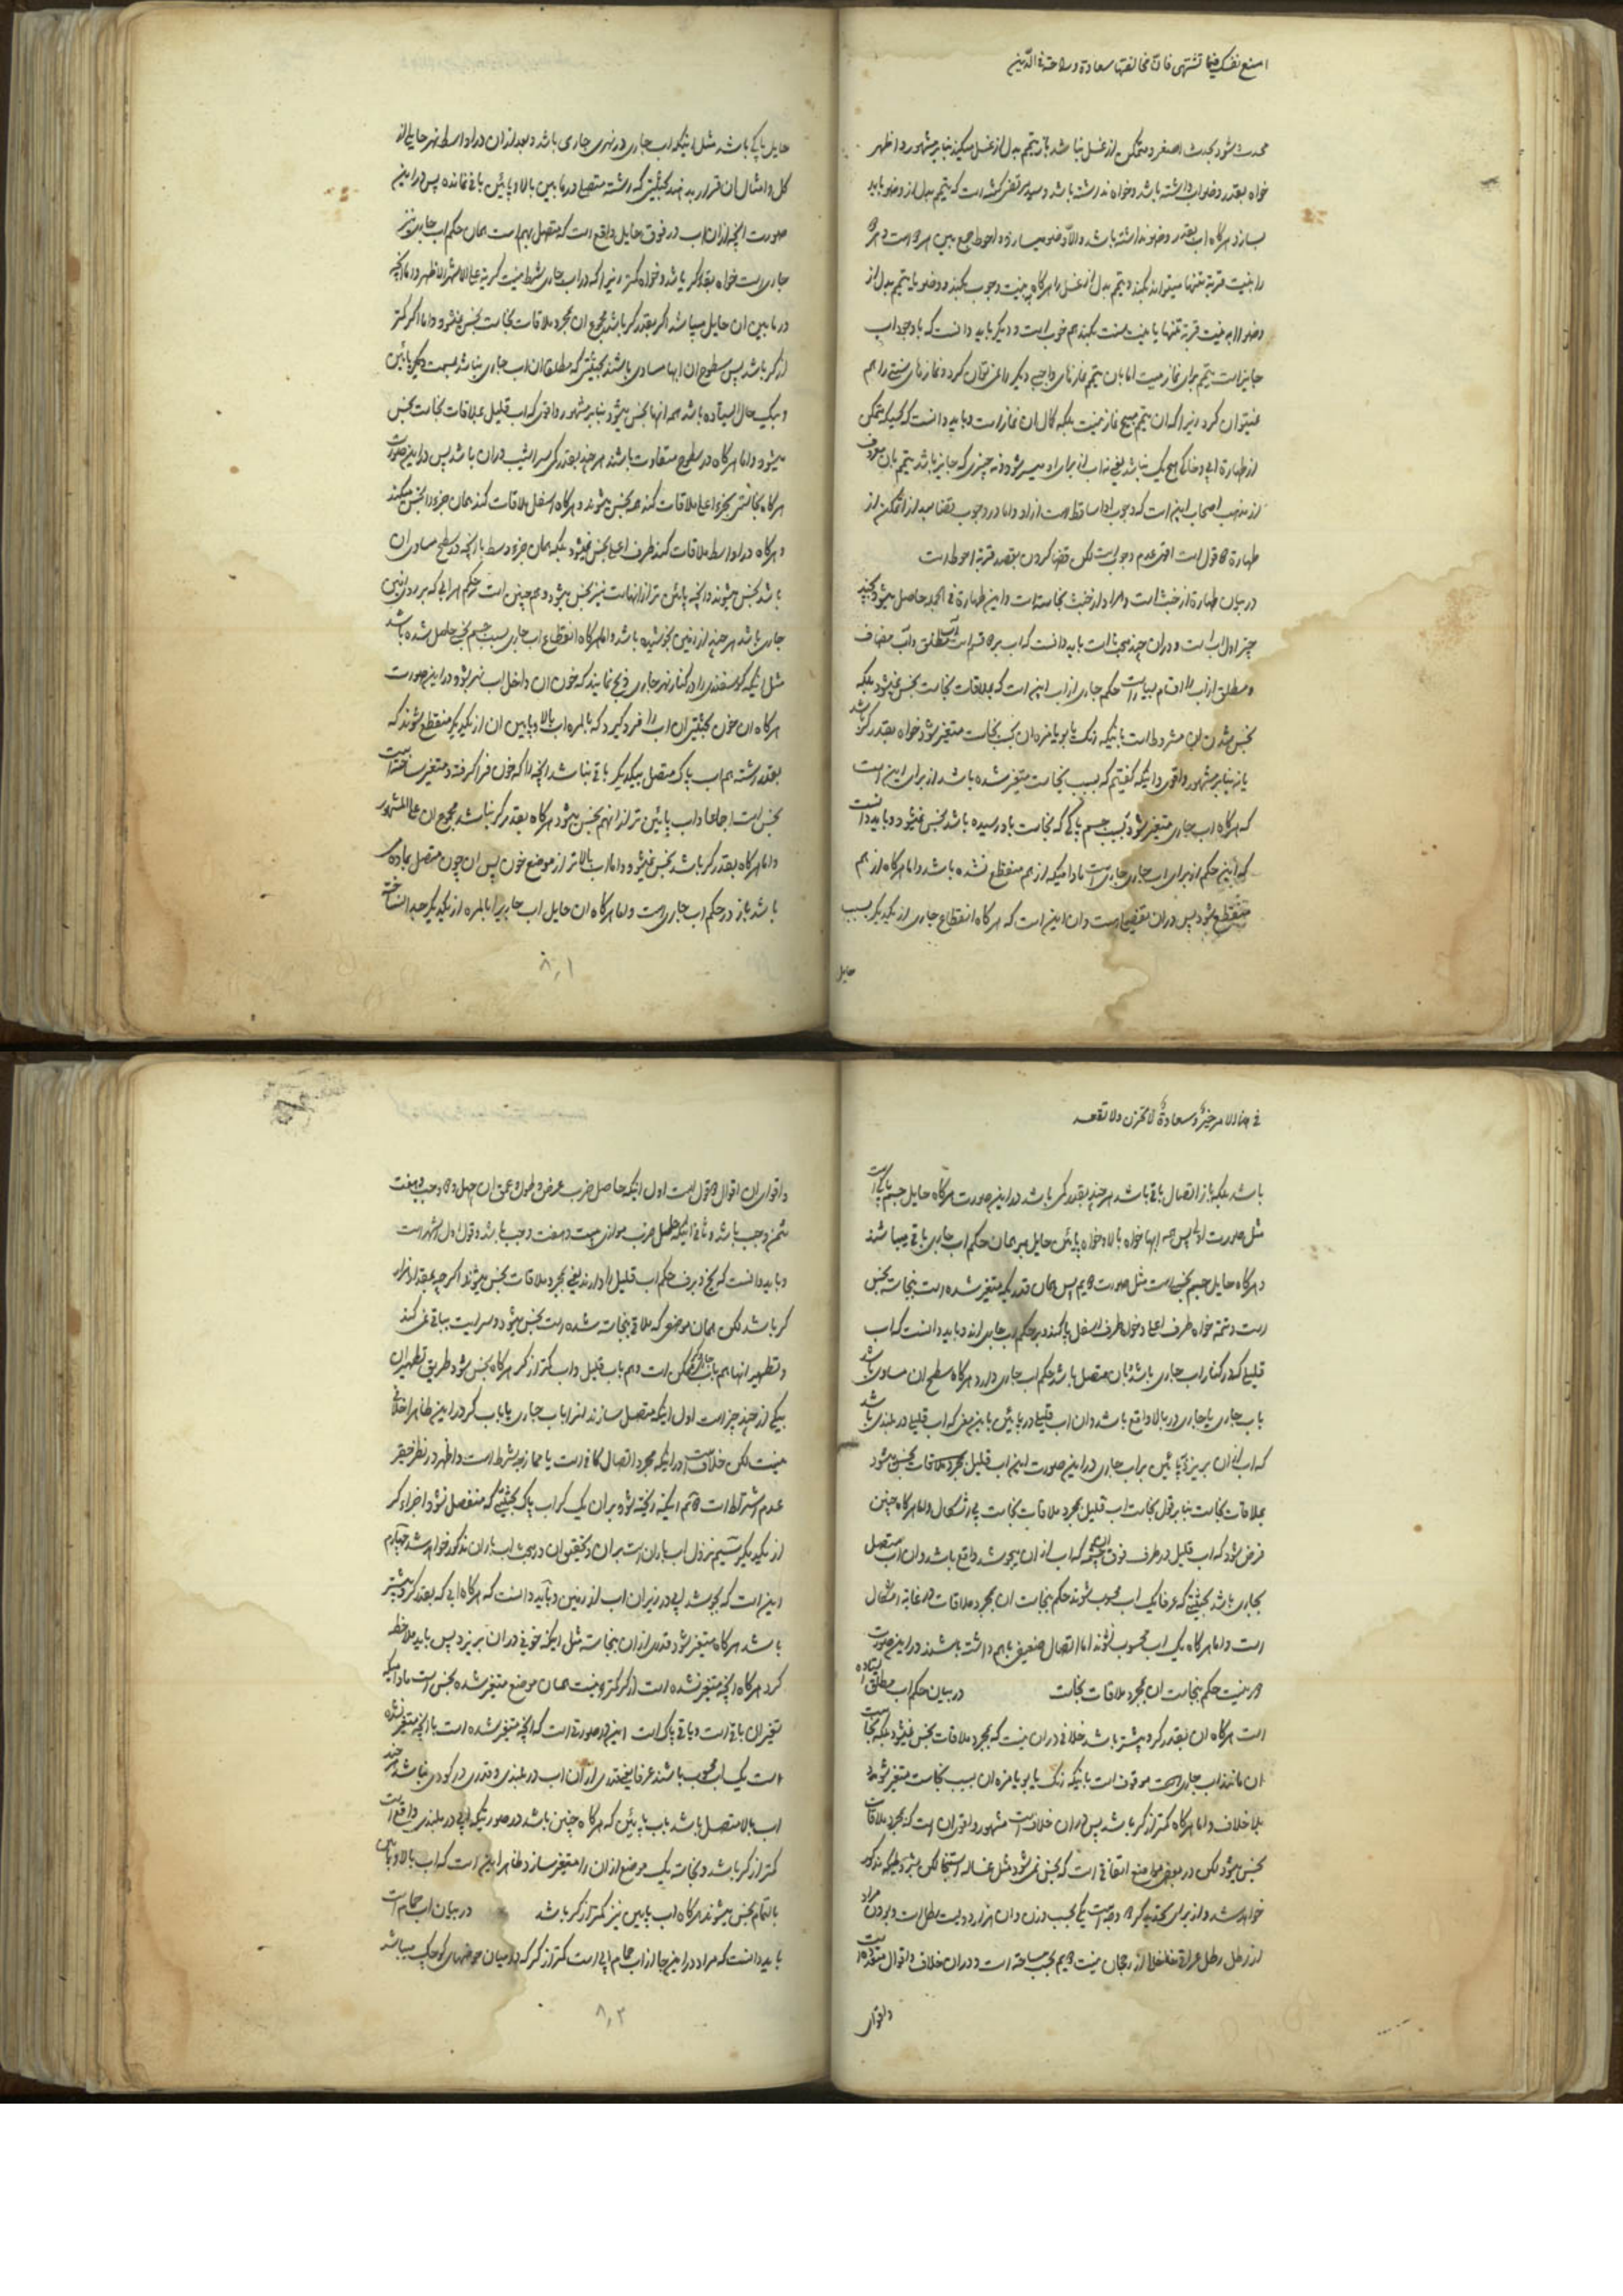 امنع نفسک فیما تشتهی فان مخالفتها سعادة وسلامة فی الدین
محدث شود بحدث اصغر و متمکن از غسل نباشد باز تیمم بدل از غسل میکند بنابر مشهور و اظهر
خواه بقدر وضو اب داشته باشد و خواه نداشته باشد و سید مرتضی گفته است که تیمم بدل از وضو باید
بسازد هرگاه اب بقدر وضو نداشته باشد والا وضو میسازد و احوط جمع بین هر
را بنیت قربة تنها میتواند بکند و تیمم بدل از غسل را هرگاه بنیت وجوب بکند و وضو یا تیمم بدل از
وضو را به نیت قربة تنها یا بنیت سنت بکند هم خوب است و دیگر باید دانست که با وجود اب
جایز است تیمم برای نماز میت اما بان تیمم نمازهای واجبی دیگر را نمیتوان کرد و نمازهای سنتی را هم
نمیتوان کرد زیرا که ان تیمم مبیح نماز نیست بلکه کمال ان نماز است و باید دانست که کسیکه متمکن
از طهارة ابی و خاکی هیچ یک نباشد یعنی نه اب از برای او میسر شود و نه چیزی که جایز باشد تیمم بان معروف
از مذهب اصحاب اینست که وجوب ادا ساقط است از او و اما در وجوب قضا بعد از تمکن از
طهارة قول است اقوی عدم وجوب است لکن قضا کردن بقصد قربة احوط است
در بیان طهارة از خبث است و مراد از خبث نجاستهاست و این طهارة فی الجمله حاصل میشود بچند
چیز اول اب است و در ان چند بحث است باید دانست که اب بر قسم است اب مطلق و اب مضاف
و مطلق از اب را اقسام بسیار است حکم جاری از اب اینست که بملاقات نجاست نجس نمیشود بلکه
نجس شدن ان مشروط است بانیکه رنگ یا بو یا مزه ان بسبب نجاست متغیر شود خواه بقدر کر باشد
یا نه بنابر مشهور و اقوی و اینکه گفتیم که بسبب نجاست متغیر شده باشد از برای اینست
که هرگاه اب جاری متغیر شود بسبب جسم پاکی که نجاست باو رسیده باشد نجس نمیشود و باید دانست
که این حکم از برای اب جاری جاری است مادامیکه از هم منقطع نشده باشد و اما هرگاه از هم
منقطع شود پس در ان تفصیل است و ان اینست که هرگاه انقطاع جاری از یکدیگر بسبب
حایل
حایل پاکی باشد مثل اینکه اب جاری در نهری جاری باشد و بعد از ان در اواسط نهر حایلی از
کل و امثال ان قرار بدهند بحیثیتی که رشته متصلی در مابین بالا و پائین باقی نمانده پس در این
صورت انچه از ان اب در فوق حایل واقع است که متصل بهم است همان حکم اب جاریرا
جاری است خواه بقدر کر باشد و خواه کمتر زیرا که در اب جاری شرط نیست کریة علی الاشهر الاظهر و اما انچه
در مابین ان حایل میباشد اگر بقدر کر باشد مجموع ان بمجرد ملاقات نجاست نجس نمیشود و اما اگر کمتر
از کر باشد پس سطوح ان ابها مساوی باشند بحیثیتی که مطلقا ان اب جاری نباشد بسمت دیگر پائین
و بیک حال ایستاده باشد همه انها نجس میشود بنابر مشهور و اقوی که اب قلیل بملاقات نجاست نجس
میشود و اما هرگاه در سطوح متفاوت باشند هرچند بقدر کمی سراشیب در ان باشد پس در این صورت
هرگاه نجاستی بجزء اعلی ملاقات کند همه نجس میشوند و هرگاه باسفل ملاقات کند همان جزء را نجس میکند
و هرگاه در اواسط ملاقات کند طرف اعلی نجس نمیشود بلکه همان جزء وسط با انچه در سطح مساوی ان
باشد نجس میشوند و انچه پائین تر از انهاست نیز نجس میشود و هم چنین است حکم هر ابی که بر روی زمین
جاری باشد هرچند از زمین نجوشیده باشد و اما هرگاه انقطاع اب جاری بسبب جسم نجسی حاصل شده باشد
مثل اینکه گوسفندی را در کنار نهر جاری ذبح نمایند که خون ان داخل اب نهر شود و در این صورت
هرگاه ان خون بحیثیتی ان اب را فرو گیرد که بالمره اب بالا و پایین ان از یکدیگر منقطع شوند که
بقدر رشته هم اب پاک متصل بیکدیگر باقی نباشد انچه را که خون فرا گرفته و متغیر ساخته است
نجس است اجماعا و اب پائین تر از ان هم نجس میشود هرگاه بقدر کر نباشد مجموع ان علی المشهور
و اما هرگاه بقدر کر باشد نجس نمیشود و اما اب بالاتر از موضع خون پس ان چون متصل بماده
باشد باز در حکم اب جاری است و اما هرگاه ان حایل اب جاریرا بالمره از یکدیگر جدا نساخته
۸۰۱
فی هذا الامر خیر و سعادة لا تحزن ولا تقعد
باشد بلکه باز اتصال باقی باشد هرچند بقدر کمی باشد در این صورت هرگاه حایل جسم پاکی است
مثل صورت اولی پس همه ابها خواه بالا و خواه پائین حایل بر همان حکم اب جاری باقی میباشند
و هرگاه حایل جسم نجسی است مثل صورت دویم پس همان قدریکه متغیر شده است بنجاسة نجس
است و تتمه خواه طرف اعلی و خواه طرف اسفل پاکند و بر حکم اب جاری اند و باید دانست که اب
قلیلی که در کنار اب جاری باشد و بان متصل باشد حکم اب جاری دارد هرگاه سطح ان مساوی باشد
با اب جاری یا جاری در بالا واقع باشد و ان اب قلیل در پائین باین معنی که اب قلیلی در بلندی باشد
که اب از ان بریزد بپائین بر اب جاری در این صورت این اب قلیل بمجرد ملاقات نجس میشود
بملاقات نجاست بنابر قول نجاست اب قلیل بمجرد ملاقات نجاست بی اشکال و اما هرگاه چنین
فرض شود که اب قلیل در طرف فوق ان چشمه که اب از ان بیجوشد واقع باشد و ان اب متصل
بجاری باشد بحیثیتی که عرفا یک اب محسوب شوند حکم بنجاست ان بمجرد ملاقات در غایة اشکال
است و اما هرگاه یک اب محسوب نشوند اما اتصال ضعیفی باهم داشته باشند در این صورت
دور نیست حکم بنجاست ان بمجرد ملاقات نجاست در بیان حکم اب مطلق ایستاده
است هرگاه ان بقدر کر و بیشتر باشد خلافی در ان نیست که بمجرد ملاقات نجس نمیشود بلکه نجاست
ان مانند اب جاری است موقوف است بانیکه رنگ یا بو یا مزه ان بسبب نجاست متغیر شود
بلا خلاف و اما هرگاه کمتر از کر باشد پس در ان خلاف است مشهور و اقوی ان است که بمجرد ملاقات
نجس میشود لکن در بعضی مواضع اتفاقی است که نجس نمیشود مثل غساله استنجا لکن بشروطیکه مذکور
خواهد شد و از برای تحدید کر دو وجه است یکی بحسب وزن و ان هزار و دویست رطل است و بودن مراد
از رطل رطل عراقی خالی از رجحان نیست دویم بحسب مساحة است و در ان خلاف و اقوال متعدده است
و اقوای
و اقوای ان اقوال دو قول است اول اینکه حاصل ضرب عرض و طول و عمق ان چهل و دو وجب و هفت
ثمن وجب باشد و ثانی اینکه حاصل ضرب موازی بیست و هفت وجب باشد و قول اول اشهر است
و باید دانست که یخ و برف حکم اب قلیل را دارند یعنی بمجرد ملاقات نجس میشوند اگرچه بقدر هزار
کر باشد لکن همان موضعی که ملاقی نجاسة شده است نجس میشود و سرایت بباقی نمی کند
و تطهیر انها هم باب جاری ممکن است و هم باب قلیل و اب کمتر از کر هرگاه نجس شود طریق تطهیر ان
بیکی از چند چیز است اول اینکه متصل سازند انرا باب جاری یا باب کر و در این ظاهرا خلافی
نیست لکن خلاف است در اینکه مجرد اتصال کافی است یا ممازجه شرط است و اظهر در نظر حقیر
عدم اشتراط است دویم اینکه ریخته شود بر ان یک کر اب پاک بحیثیتی که منفصل نشود اجزاء کر
از یکدیگر سیم نزول اب باران است بر ان و تحقیق ان در مبحث اب باران مذکور خواهد شد چهارم
اینست که بجوشد ابی در زیر ان اب از زمین و باید دانست که هرگاه ابی که بقدر کر و بیشتر
باشد هرگاه متغیر شود قدری از ان بنجاسة مثل اینکه خونی در ان بریزد پس باید ملاحظه
کرد هرگاه انچه متغیر نشده است از کر کمتر نیست همان موضع متغیر شده نجس است مادامیکه
تغیر ان باقی است و باقی پاک است این در صورتی است که انچه متغیر شده است با انچه متغیر نشده
است یک اب محسوب باشند عرفا یعنی قدری از ان اب در بلندی و قدری در گودی نباشد هرچند
اب بالا متصل باشد باب پائین که هرگاه چنین باشد در صورتیکه ابی در بلندی واقع است
کمتر از کر باشد و نجاسة یک موضع از ان را متغیر سازد ظاهر اینست که اب بالا و پائین
بالتمام نجس میشوند هرگاه اب پایین نیز کمتر از کر باشد در بیان اب حمام است
باید دانست که مراد در این جا از اب حمام ابی است کمتر از کر که در میان حوضهای کوچک میباشد
۸۰۲